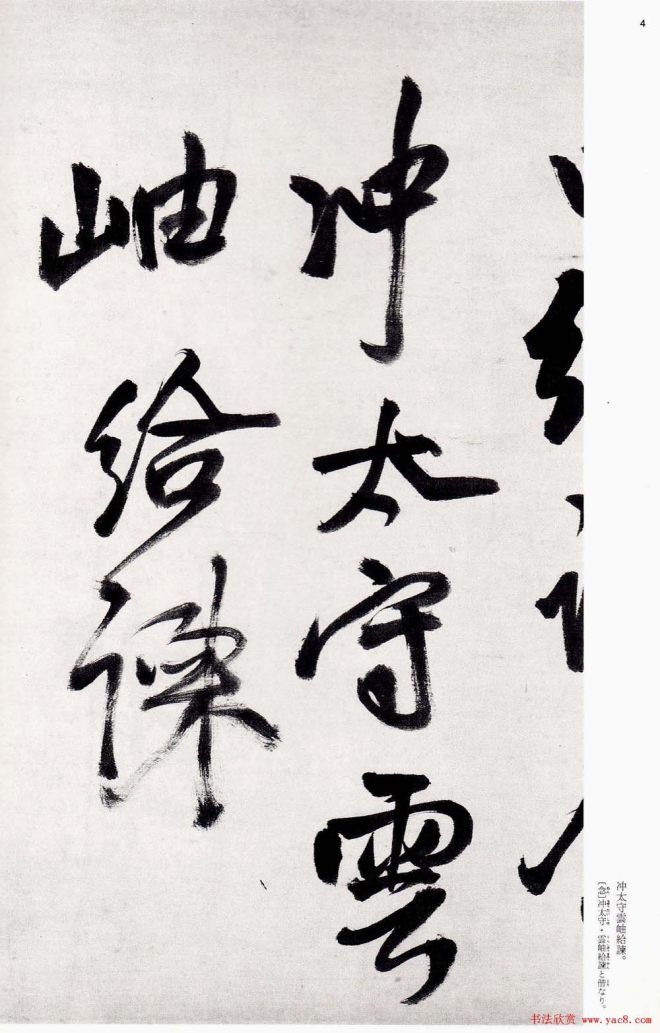 4
冲太守雲
岫給諫
冲太守雲岫給諫。
〔念〕冲太守・雲岫給諫と偕なり。
书法欣赏 www.yac8.com